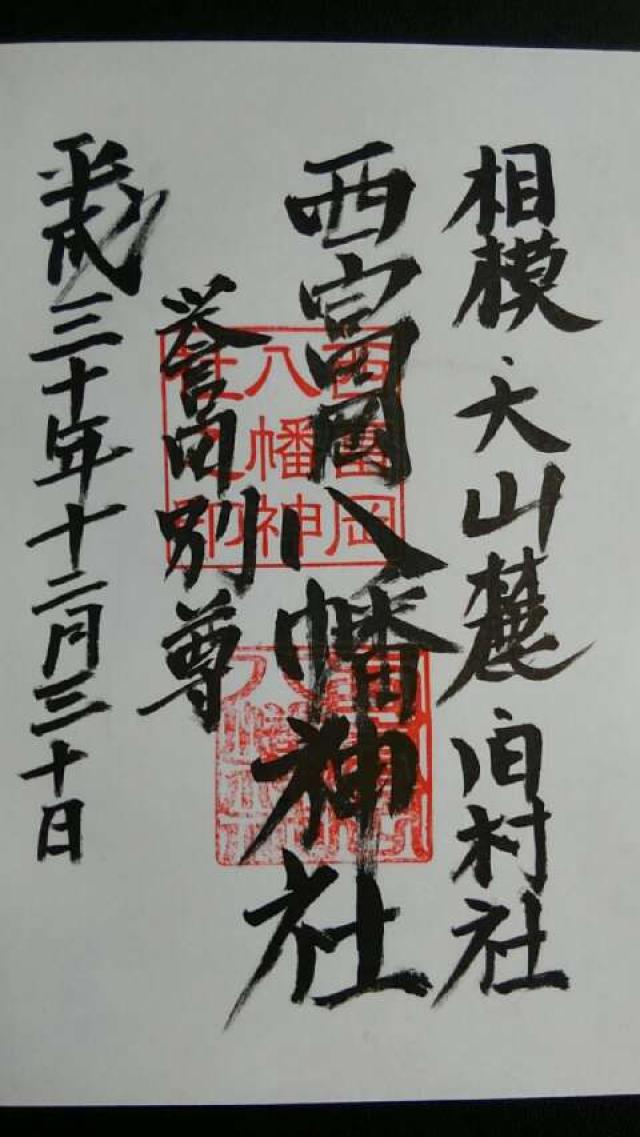 相模・大山麓 旧村社
西富岡八幡神社
誉田別尊
平成三十年十二月三十日
西富岡
八幡神
社之印